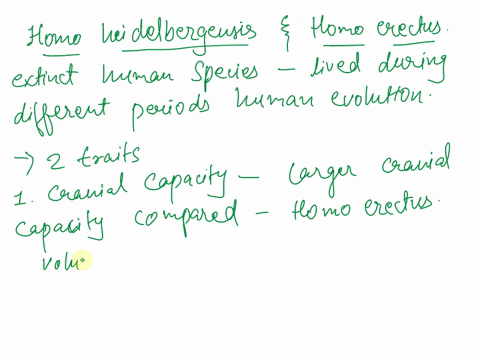 Homo heidelbergensis & Homo erectus.
extinct human species - lived during
different periods human evolution.
→ 2 traits
1. Cranial capacity - larger cranial
capacity compared - Homo erectus.
volu